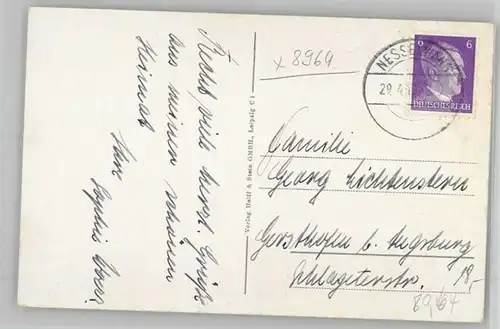 Recht viele herzl. Grüße
aus meiner schönen
Heimat
x 8964
Verlag Heiff & Stein GMBH., Leipzig C 1
NESSEL
29.4.
6
6
DEUTSCHES REICH
Familie
Georg Lichtenstern
Gersthofen b. Augsburg
Schlageterstr. 18,-
8964